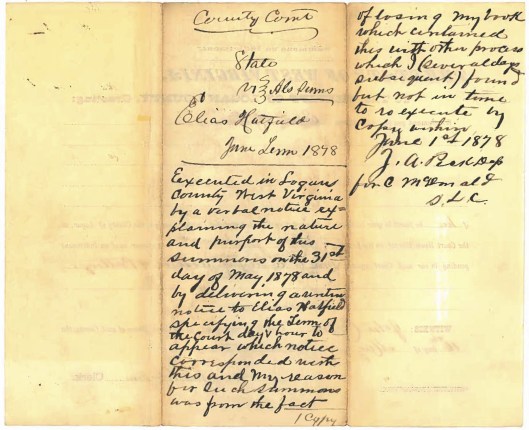 County Court
State
vs Als Sums
Elias Hatfield
June Term 1878
Executed in Logan
County West Virginia
by a verbal notice ex=
plaining the nature
and purport of this
summons on the 31st
day of May 1878 and
by delivering a written
notice to Elias Hatfield
specifying the Term of
the Court day & hour to
appear which notice
corresponded with
this and my reason
for such summons
was from the fact
1 Copy
of losing my book
which contained
this with other process
which I (several days
subsequent) found
but not in time
to re execute by
Copy within
June 1st 1878
J. A.
for C McDonald
S. L. C.